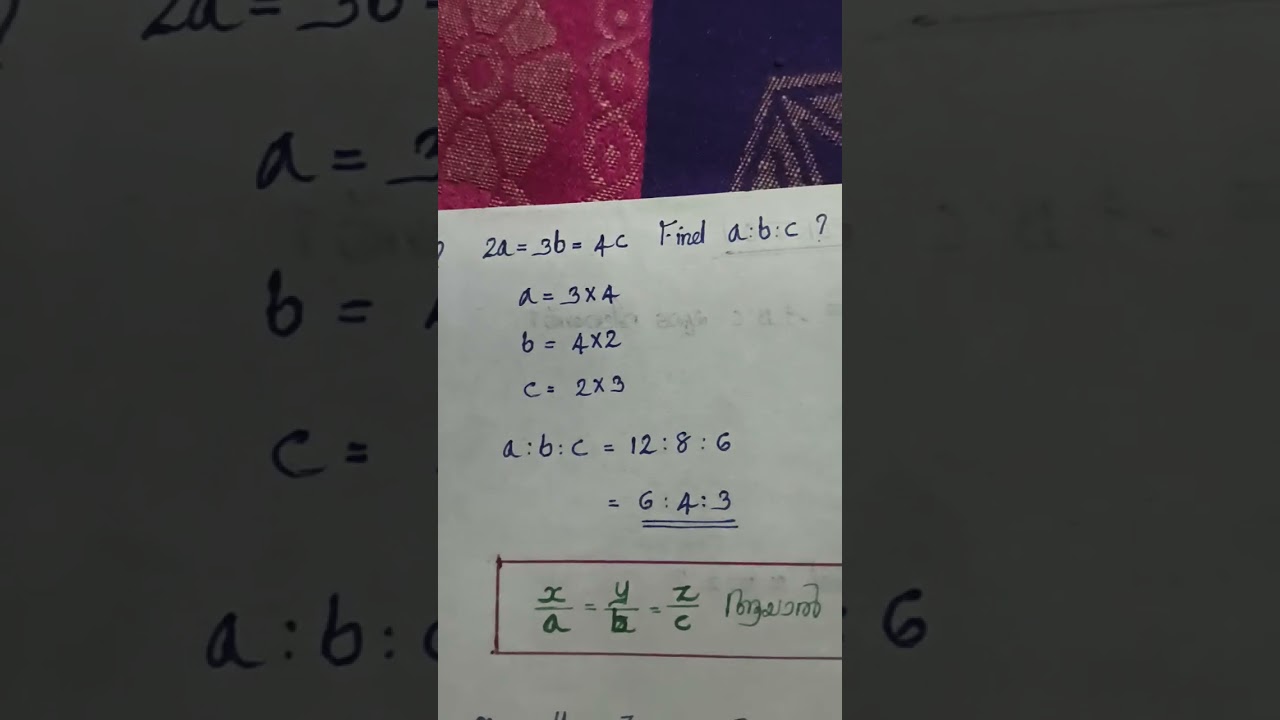 2a = 3b = 4c Find a:b:c ?
a = 3×4
b = 4×2
c = 2×3
a:b:c = 12:8:6
= 6:4:3
x/a = y/b = z/c ആയാൽ